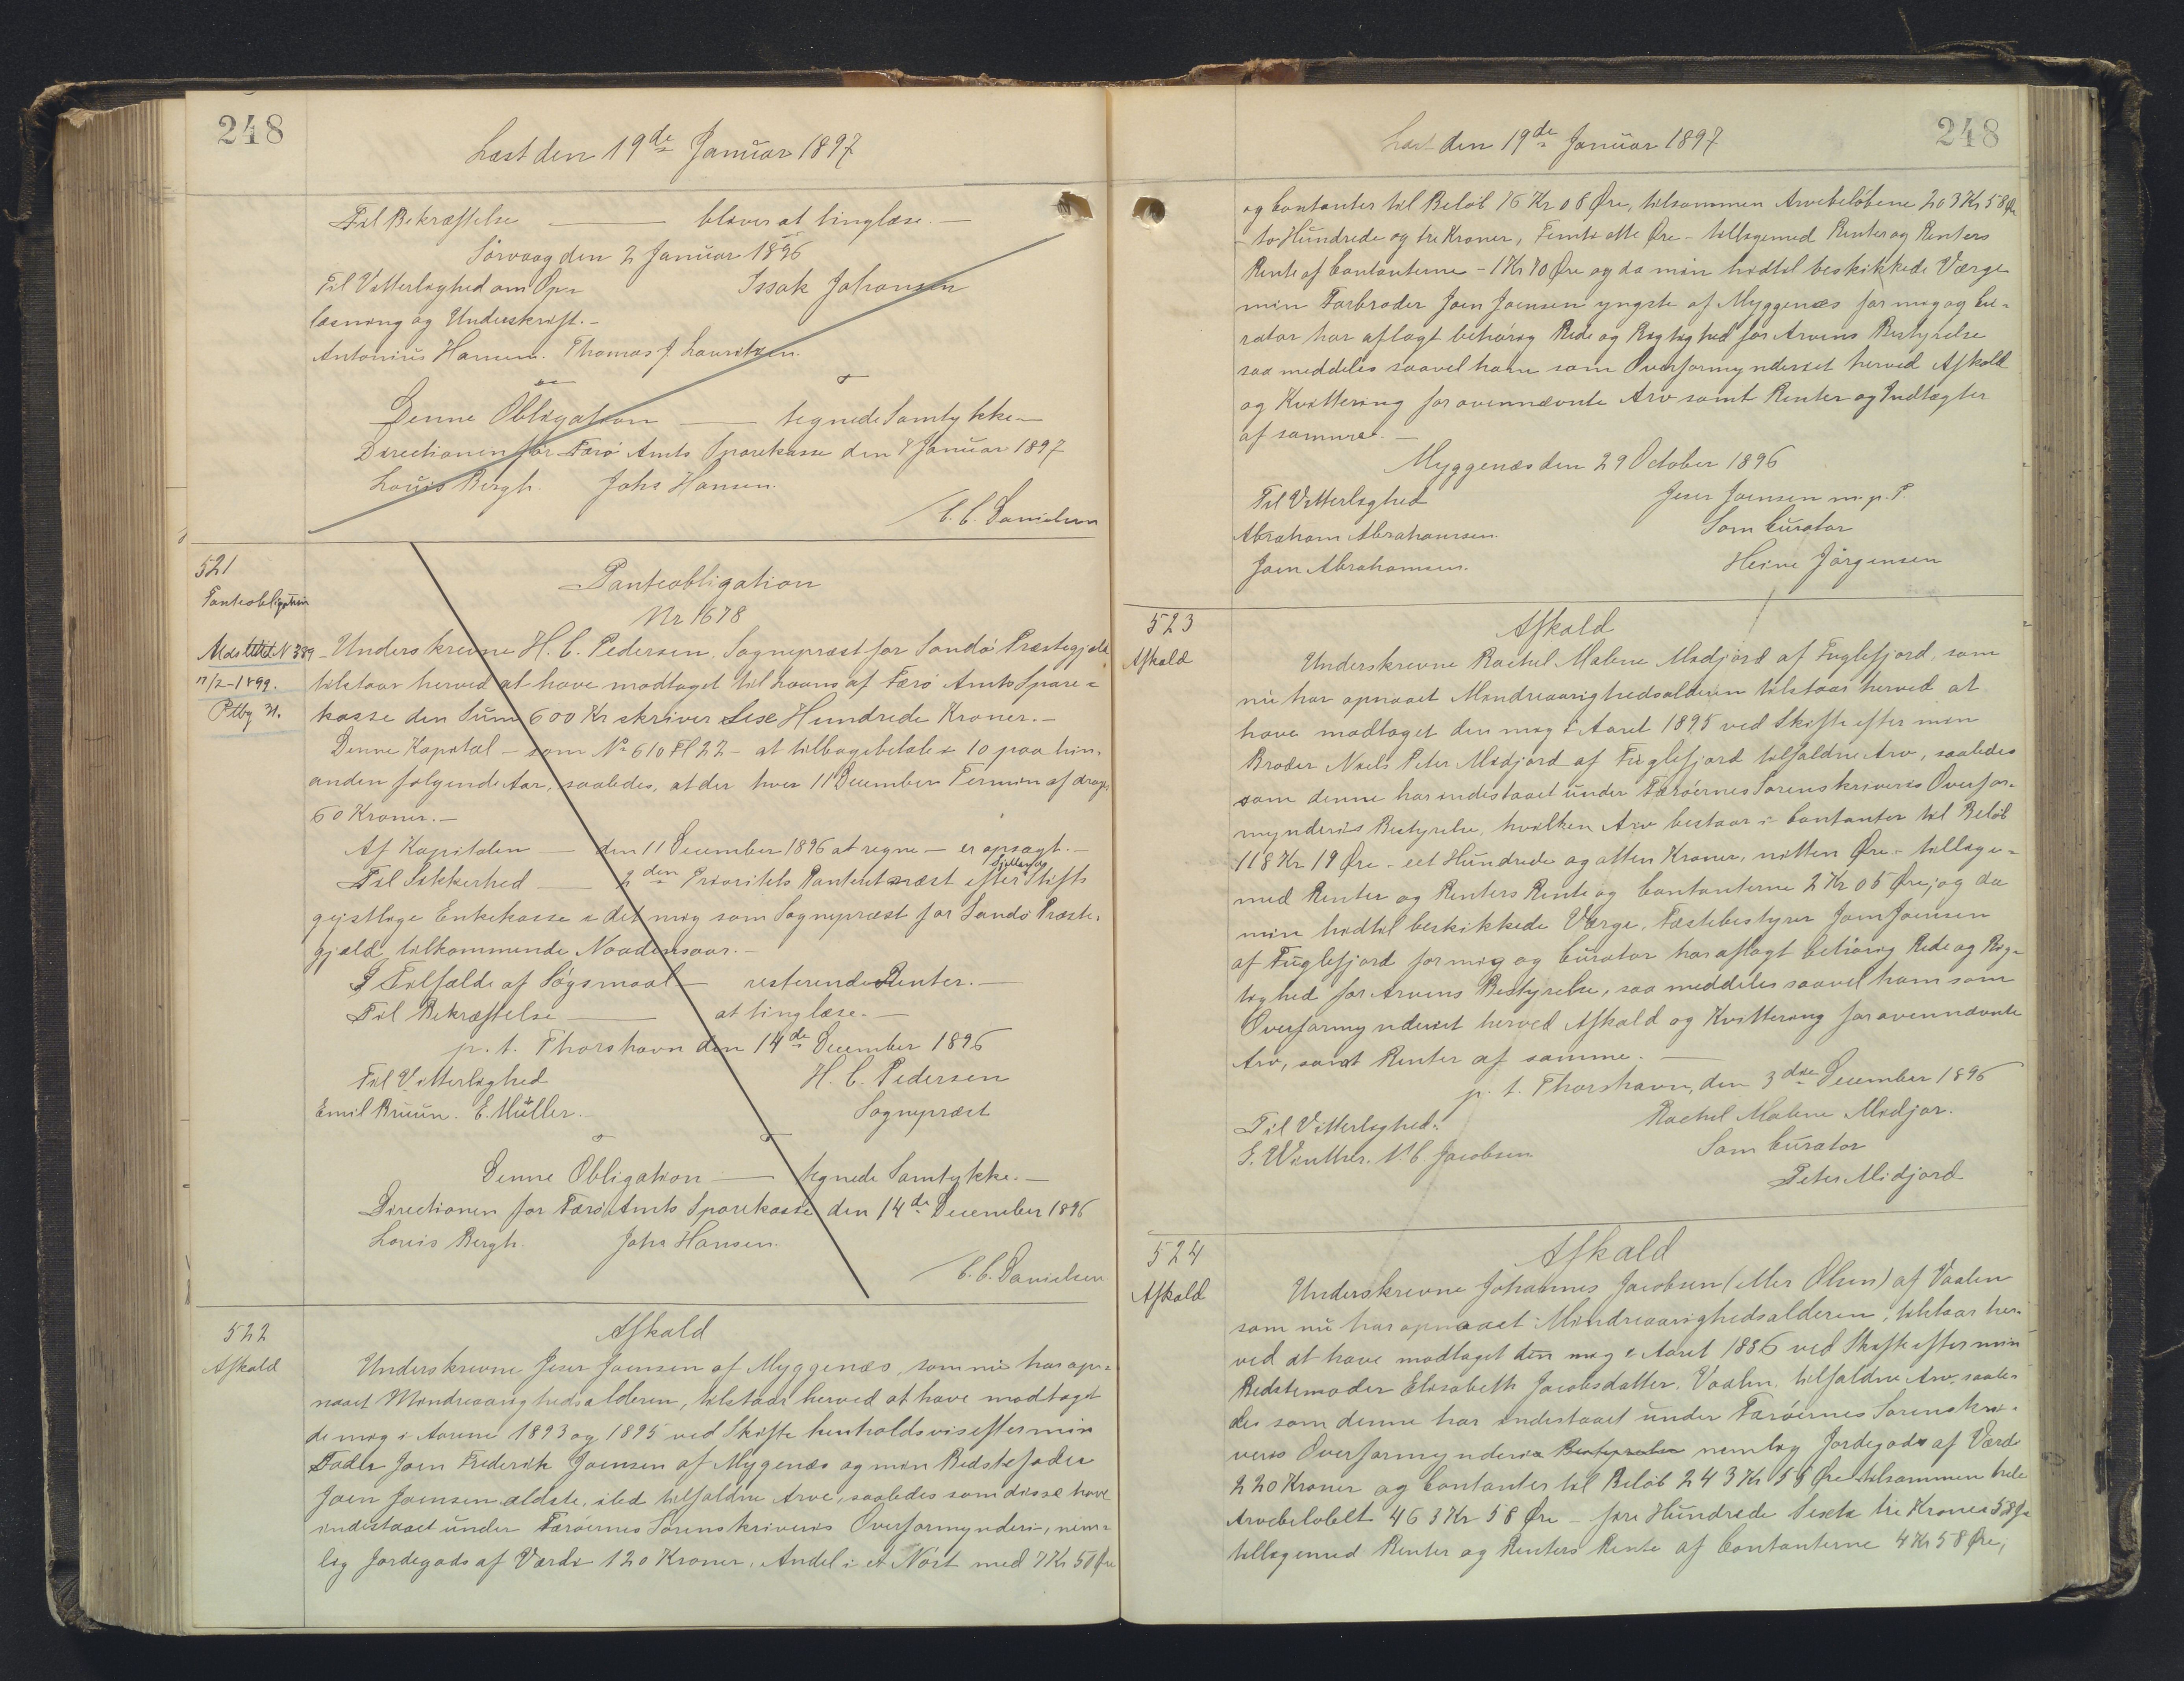 248
Læst den 19de Januar 1897
Til Bekræftelse — bliver at tinglæse. —
Sörvaag den 2 Januar 1896
Til Vitterlighed om Op= Issak Johansen
læsning og Underskrift. —
Antonius Hansen. Thomas J Lauritzen.
Denne Obligation — tegnede Samtykke —
Directionen for Færö Amts Sparekasse den 8 Januar 1897
Louis Bergh. Johs Hansen.
C. C. Danielsen
521
Panteobligation
Panteobligation
Nr 1678
Modt N 339
17/2-1899.
Ptbg H.
Underskrevne H. C. Pedersen, Sognepræst for Sandö Præstegjæld
tilstaar herved at have modtaget til Laans af Færö Amts Spare=
kasse den Sum 600 Kr skriver Sex Hundrede Kroner. —
Denne Kapital — som No 610 Fl 22 — at tilbagebetales i 10 paa hin=
anden følgende Aar, saaledes, at der hver 11 December Termin afdrages
60 Kroner. —
Af Kapitalen — den 11 December 1896 at regne — er opsagt. —
Til Sikkerhed — 2den Prioritets Panteret næst efter Sjællands Stifts
gejstlige Enkekasse i det mig som Sognepræst for Sandö Præste=
gjæld tilkommende Naadensaar. —
I Tilfælde af Søgsmaal — resterende Renter. —
Til Bekræftelse — at tinglæse. —
p. t. Thorshavn den 14de December 1896
Til Vitterlighed H. C. Pedersen
Emil Bruun. E. Müller. Sognepræst
Denne Obligation — tegnede Samtykke. —
Directionen for Færö Amts Sparekasse den 14de December 1896
Louis Bergh. Johs Hansen.
C. C. Danielsen
522
Afkald
Afkald
Underskrevne Jeser Joensen af Myggenæs, som nu har op=
naaet Mindreaarighedsalderen, tilstaar herved at have modtaget
de mig i Aarene 1893 og 1895 ved Skifte henholdsvis efter min
Fader Joen Frederik Joensen af Mygenæs og min Bedstefader
Joen Joensen ældste, ibd tilfaldne Arve, saaledes som disse have
indestaaet under Færöernes Sorenskriveris Overformynderi, nem=
lig Jordegods af Værdi 120 Kroner, Andel i et Nöst med 7 Kr 50 Øre
248
Læst den 19de Januar 1897
og Contanter til Beløb 76 Kr 08 Øre, tilsammen Arvebeløbene 203 Kr 58 Øre
— to Hundrede og tre Kroner, Femti otte Øre — tilligemed Renter og Renters
Rente af Contanterne — 1 Kr 70 Øre og da min hidtil beskikkede Værge
min Farbroder Joen Joensen yngste af Myggenæs for mig og Cu=
rator har aflagt behörig Rede og Rigtighed for Arvens Bestyrelse
saa meddeles saavel ham som Overformynderiet herved Afkald
og Kvittering for ovennævnte Arv samt Renter og Indtægter
af samme. —
Myggenæs den 29 October 1896
Til Vitterlighed Jeser Joensen m. p. P.
Abraham Abrahamsen. Som Curator
Joen Abrahamsen. Heine Jörgensen
523
Afkald
Afkald
Underskrevne Rachel Malene Midjord af Fuglefjord, som
nu har opnaaet Mindreaarighedsalderen tilstaar herved at
have modtaget den mig i Aaret 1895 ved Skifte efter min
Broder Niels Peter Midjord af Fuglefjord tilfaldne Arv, saaledes
som denne har indestaaet under Færöernes Sorenskriveris Overfor=
mynderis Bestyrelse, hvilken Arv bestaar i Contanter til Beløb
118 Kr 19 Øre — eet Hundrede og atten Kroner, nitten Øre — tillige=
med Renter og Renters Rente og Contanterne 2 Kr 05 Øre, og da
min hidtil beskikkede Værge, Fæstebestyrer Joen Joensen
af Fuglefjord for mig og Curator har aflagt behörig Rede og Rig=
tighed for Arvens Bestyrelse, saa meddeles saavel ham som
Overformynderiet herved Afkald og Kvittering for ovennævnte
Arv, samt Renter af samme. —
p. t. Thorshavn, den 3die December 1896
Til Vitterlighed. Rachel Malene Midjor.
G. Winther. N. C. Jacobsen Som Curator
Peter Midjord
524
Afkald
Afkald
Underskrevne Johannes Jacobsen (eller Olsen) af Vaalen
som nu har opnaaet Mindreaarighedsalderen, tilstaar her=
ved at have modtaget den mig i Aaret 1886 ved Skifte efter min
Bedstemoder Elisabeth Jacobsdatter, Vaalen, tilfaldne Arv, saale=
des som denne har indestaaet under Færöernes Sorenskri=
veris Overformynderis Bestyrelse nemlig Jordegods af Værdi
220 Kroner og Contanter til Beløb 243 Kr 58 Øre tilsammen hele
Arvebeløbet 463 Kr 58 Øre — fire Hundrede Sexti tre Kroner 58 Øre
tilligemed Renter og Renters Rente af Contanterne 4 Kr 58 Øre,